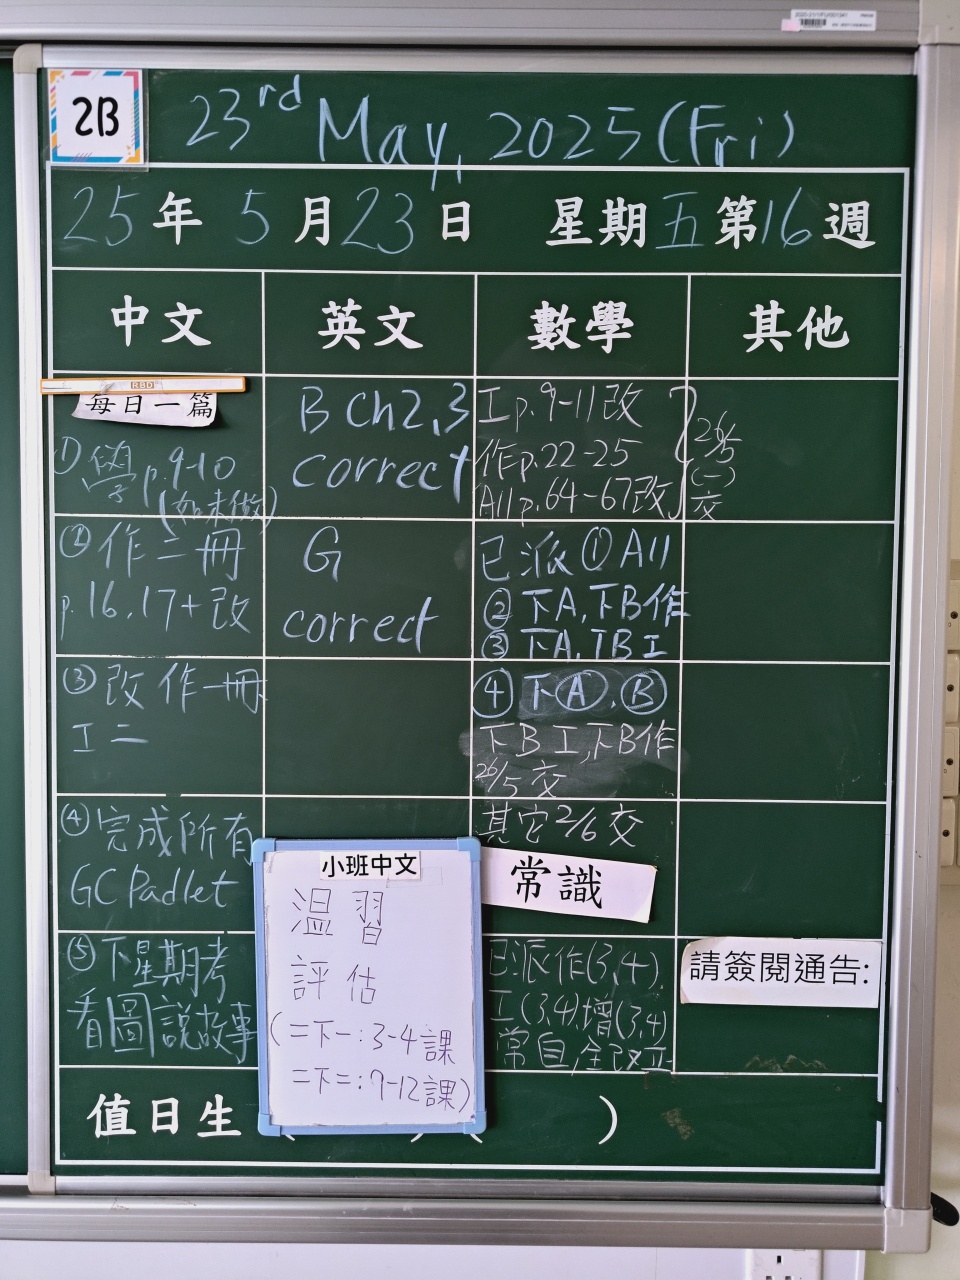 2B
23rd May, 2025 (Fri)
25年 5月23日 星期五第16週
中文
英文
數學
其他
RBD
每日一篇
① 學 p.9-10
(如未做)
② 作二冊
p.16,17+改
③ 改作一冊
工二
④ 完成所有
GC Padlet
⑤ 下星期考
看圖說故事
B Ch2,3
correct
G
correct
工p.9-11改
作p.22-25
All p.64-67改
26/5
(一)
交
已派 ① All
② 下A,下B作
③ 下A,下B工
④ 下Ⓐ,Ⓑ
下B工,下B作
26/5 交
其它 2/6 交
常識
已派作(3,4),
工(3,4),增(3,4)
常自,全改正
請簽閱通告:
小班中文
溫習
評估
(二下一:3-4課
二下二:9-12課)
值日生
( ) ( )